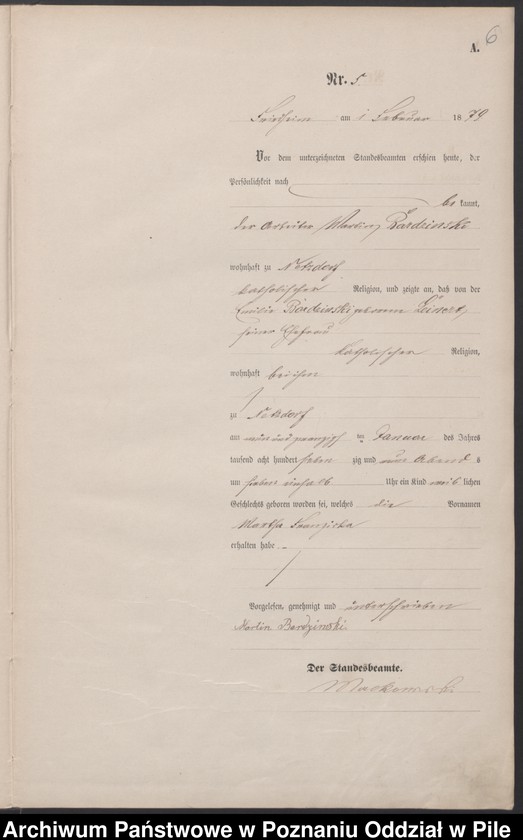 6
A.
Nr. 5
Friedheim am 1 Februar 1879
Vor dem unterzeichneten Standesbeamten erschien heute, d.r
Persönlichkeit nach
be kannt,
der Arbeiter Martin Bardzinski
wohnhaft zu Netzdorf
katholischer Religion, und zeigte an, daß von der
Emilie Bardzinski geborene
seiner Ehefrau
katholischer Religion,
wohnhaft bei ihm
zu Netzdorf
am neun und zwanzigsten Januar des Jahres
tausend acht hundert sieben zig und neun Abends
um sieben einhalb Uhr ein Kind weib lichen
Geschlechts geboren worden sei, welches die Vornamen
Martha Franziska
erhalten habe.
Vorgelesen, genehmigt und unterschrieben
Martin Bardzinski
Der Standesbeamte.
Archiwum Państwowe w Poznaniu Oddział w Pile